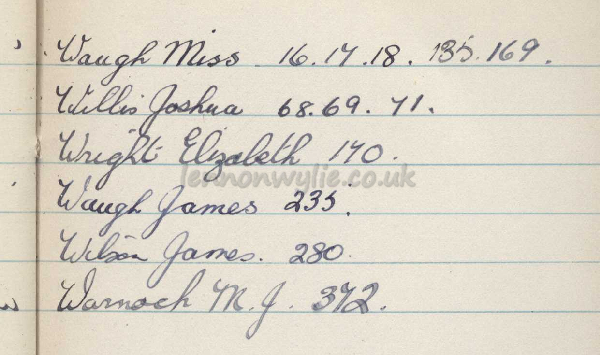 Waugh Miss 16.17.18. 135.169.
Willis Joshua 68.69.71.
Wright Elizabeth 170.
lennonwylie.co.uk
Waugh James 235.
Wilson James. 280.
Warnock M.J. 372.